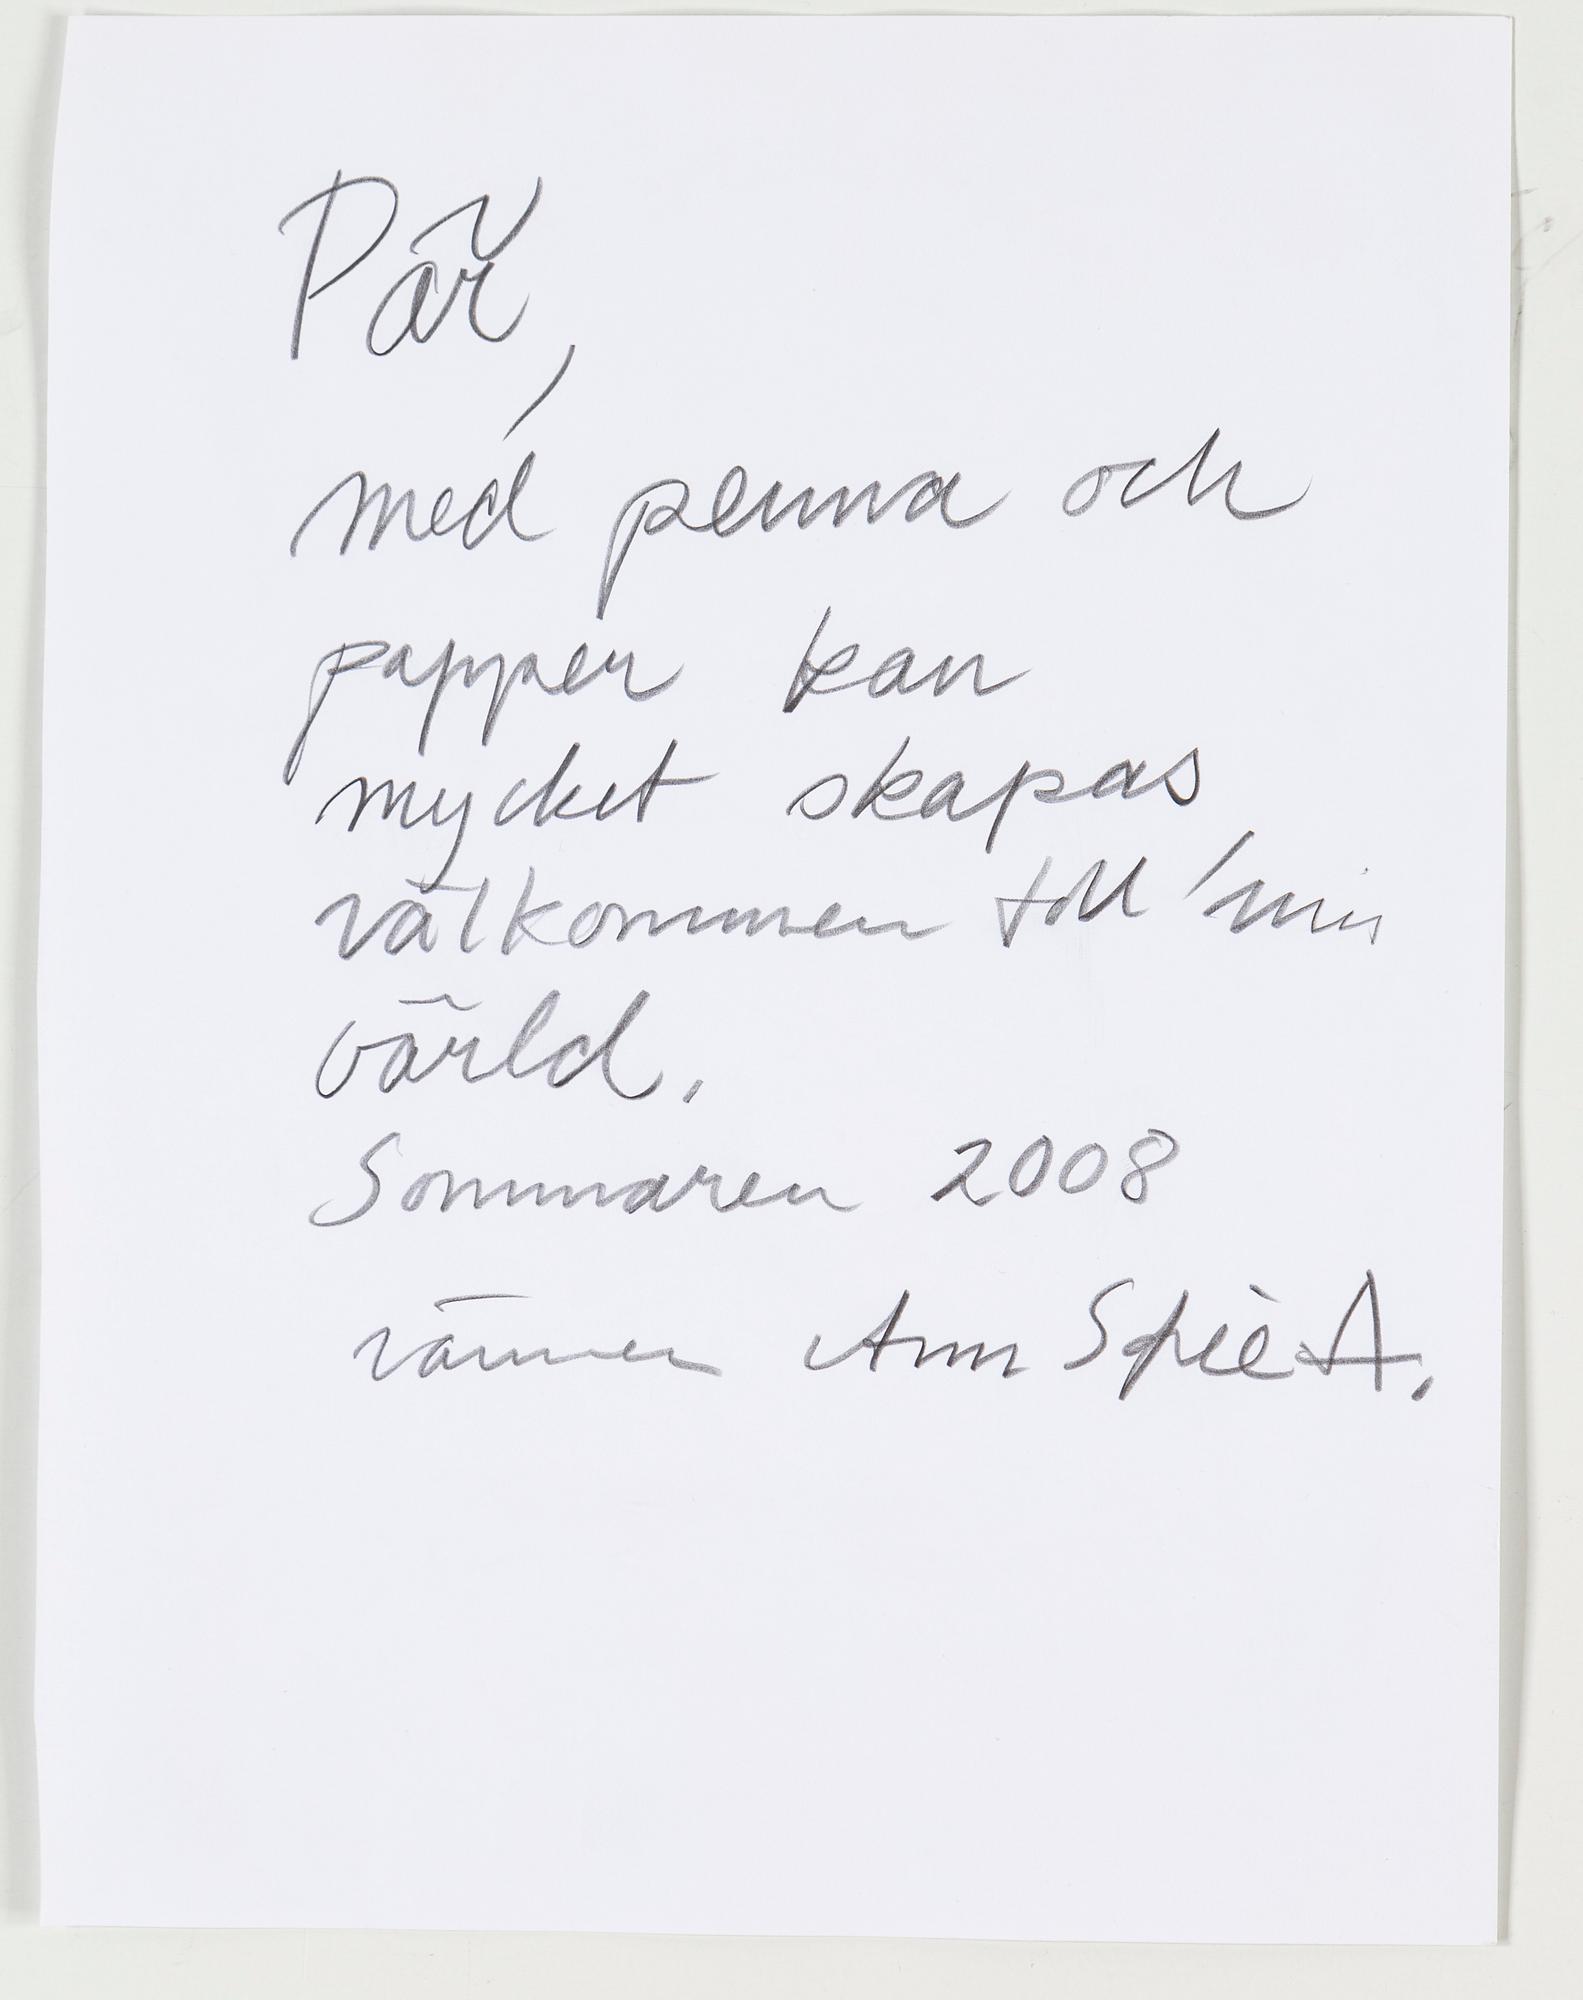 Pär,
med penna och
papper kan
mycket skapas,
välkommen till min
värld.
Sommaren 2008
vännen Ann Sofie A.